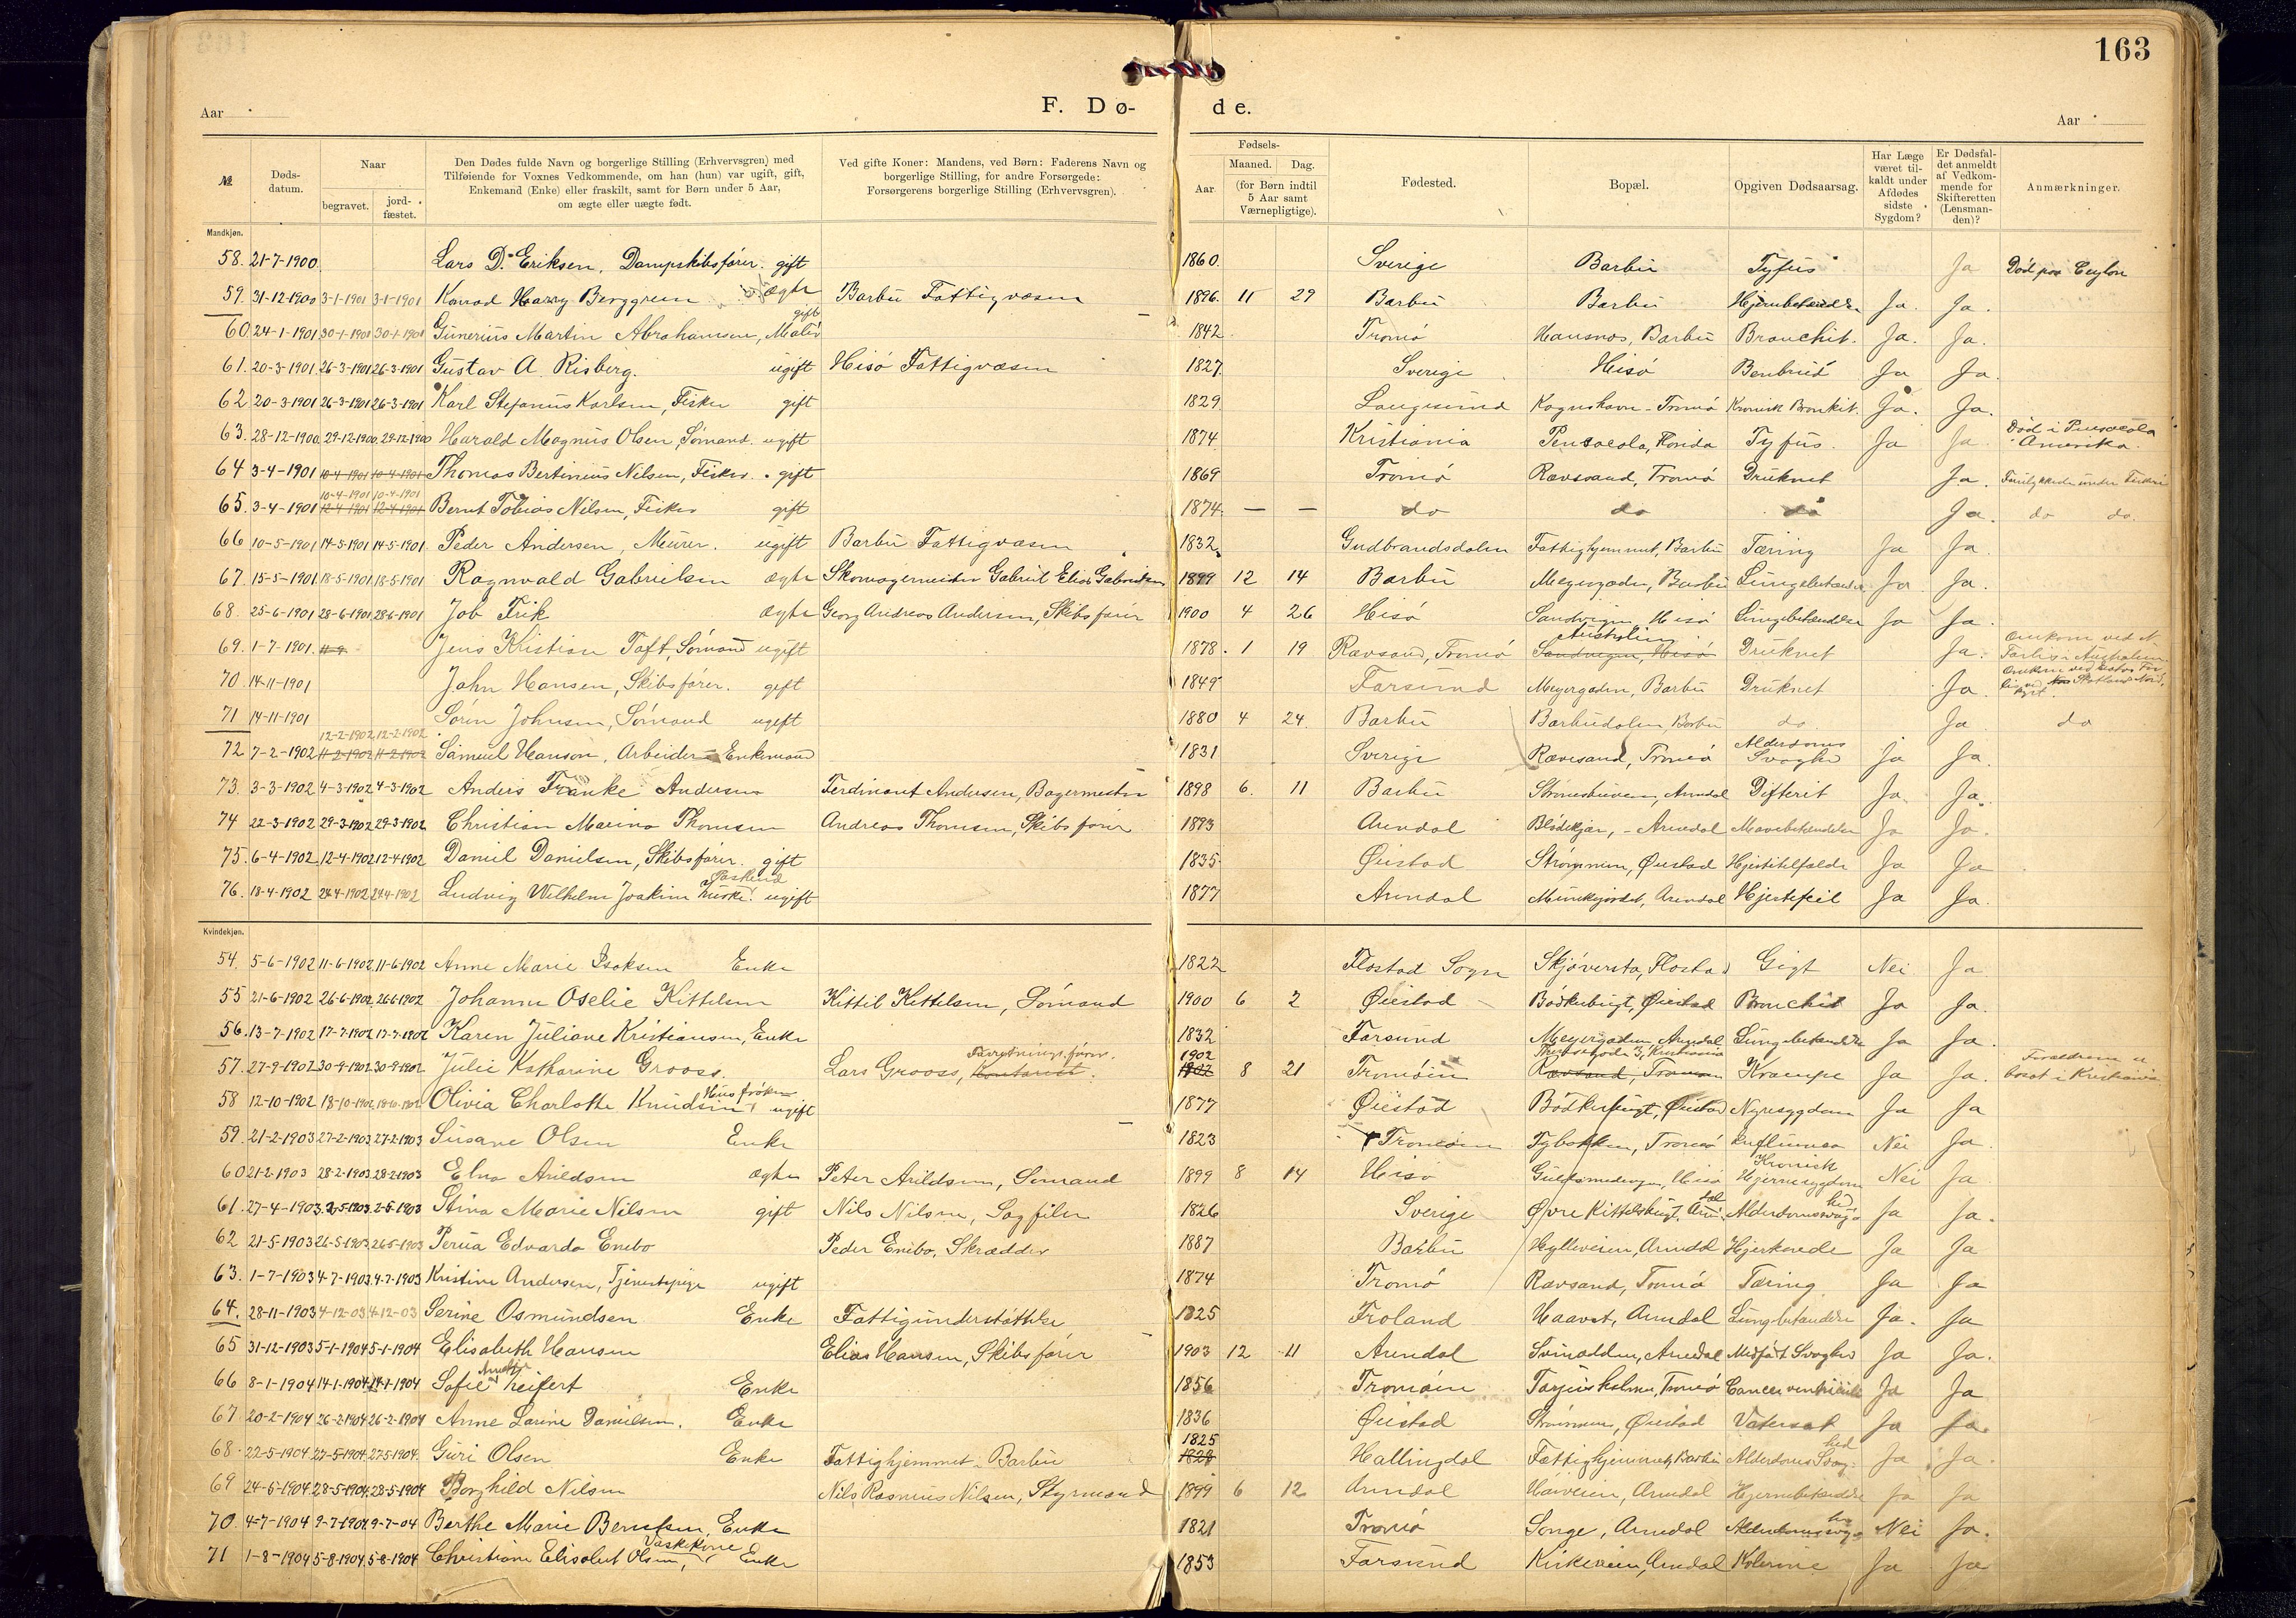 163
Aar
F. Dø-
de.
Aar
№
Døds-
datum.
Naar
begravet.
jord-
fæstet.
Den Dødes fulde Navn og borgerlige Stilling (Erhvervsgren) med
Tilføiende for Voxnes Vedkommende, om han (hun) var ugift, gift,
Enkemand (Enke) eller fraskilt, samt for Børn under 5 Aar,
om ægte eller uægte født.
Ved gifte Koner: Mandens, ved Børn: Faderens Navn og
borgerlige Stilling, for andre Forsørgede:
Forsørgerens borgerlige Stilling (Erhvervsgren).
Fødsels-
Aar.
Maaned.
Dag.
(for Børn indtil
5 Aar samt
Værnepligtige).
Fødested.
Bopæl.
Opgiven Dødsaarsag.
Har Læge
været til-
kaldt under
Afdødes
sidste
Sygdom?
Er Dødsfal-
det anmeldt
af Vedkom-
mende for
Skifteretten
(Lensman-
den)?
Anmærkninger.
Mandkjøn.
58. 21-7-1900. Lars D. Eriksen, Dampskibsfører. gift 1860. Sverige Barbu Tyfus Ja Død paa Ceylon
59. 31-12-1900 3-1-1901 3-1-1901 Konrad Harry Berggren ægte Barbu Fattigvæsen 1896. 11 29 Barbu Barbu Hjernebetændelse Ja. Ja.
60 24-1-1901 30-1-1901 30-1-1901 Gunerius Martin Abrahamsen, Maler gift 1842. Tromø Hausnes, Barbu Bronchit. Ja. Ja.
61. 20-3-1901 26-3-1901 26-3-1901 Gustav A. Risberg. ugift Hisø Fattigvæsen 1827. Sverige Hisø Benbrud Ja Ja.
62 20-3-1901 26-3-1901 26-3-1901 Karl Stefanus Karlsen, Fisker gift 1829. Langesund Kognshavn - Tromø Kronisk Bronkit. Ja. Ja.
63. 28-12-1900 29-12-1900 29-12-1900 Harald Magnus Olsen, Sømand. ugift 1874 Kristiania Pensacola, Florida Tyfus. Ja Ja Død i Pensacola Amerika.
64 3-4-1901 10-4-1901 10-4-1901 Thomas Bertinius Nilsen, Fisker. gift 1869 Tromø Rævsand, Tromø Druknet Ja. Forulykkede under Fiskeri
10-4-1901 10-4-1901
65. 3-4-1901 12-4-1901 12-4-1901 Bernt Tobias Nilsen, Fisker gift 1874. — — do do do Ja. do do.
66 10-5-1901 14-5-1901 14-5-1901. Peder Andersen, Murer. ugift Barbu Fattigvæsen 1832. Gudbrandsdalen Fattighjemmet, Barbu Tæring Ja Ja.
67. 15-5-1901 18-5-1901 18-5-1901 Ragnvald Gabrielsen ægte Skomagermester Gabriel Elias Gabrielsen 1899 12 14 Barbu Meyergaden, Barbu Lungebetændelse Ja Ja.
68. 25-6-1901 28-6-1901 28-6-1901 Job Frik ægte Georg Andreas Andersen, Skibsfører 1900 4 26 Hisø Sandvigen, Hisø Lungebetændelse Ja Ja.
69. 1-7-1901. Jens Kristian Toft, Sømand ugift 1878. 1 19 Rævsand, Tromø Sandvigen, Hisø Australien Druknet Ja. Omkom ved et Forlis i Australien.
70 14-11-1901 John Hansen, Skibsfører. gift 1849 Farsund Meyergaden, Barbu Druknet Ja.
71 14-11-1901 Søren Johnsen, Sømand ugift 1880 4 24. Barbu Barbudalen, Barbu do Ja do
12-2-1902 12-2-1902
72 7-2-1902 11-2-1902 11-2-1902 Samuel Hanson, Arbeider - Enkemand 1831 Sverige Rævesand, Tromø Alderdoms Svaghed Ja Ja.
73. 3-3-1902 4-3-1902 4-3-1902 Anders Franke Andersen Ferdinant Andersen, Bagermester 1898 6. 11 Barbu Arendal Difterit Ja. Ja.
74 22-3-1902 29-3-1902 29-3-1902 Christian Marino Thomsen Andreas Thomsen, Skibsfører 1893 Arendal Blødekjær, - Arendal Mavebetændelse Ja Ja.
75. 6-4-1902 12-4-1902 12-4-1902 Daniel Danielsen, Skibsfører. gift 1835 Øiestad Strømmen, Øiestad Hjertetilfælde Ja Ja
76. 18-4-1902 24-4-1902 24-4-1902 Ludvig Wilhelm Joakim ugift 1877 Arendal Munkejordet, Arendal Hjertefeil Ja Ja.
Kvindekjøn.
54. 5-6-1902 11-6-1902 11-6-1902 Anne Marie Isaksen Enke 1822 Flostad Sogn Skjøversta, Flostad Gigt Nei Ja
55 21-6-1902 26-6-1902 26-6-1902 Johanne Oselie Kittelsen Kittil Kittelsen, Sømand 1900 6 2 Øiestad Bødkerbugt, Øiestad Bronchit Ja Ja.
56. 13-7-1902 17-7-1902 17-7-1902 Karen Juliane Kristiansen, Enke 1832 Farsund Meyergaden, Arendal Lungebetændelse Ja Ja.
57. 27-9-1902 30-9-1902 30-9-1902 Julie Katharine Grooss. Lars Grooss, Kontorist. Forretningsfører. 1902 1902 8 21 Tromøen Rævsand, Tromøen Krampe Ja Ja. Forældrene er bosat i Kristiania
58 12-10-1902 18-10-1902 18-10-1902 Olivia Charlotte Knudsen, Husfrøken ugift 1877 Øiestad Bødkerbugt, Øiestad Nyresygdom Ja Ja
59. 21-2-1903 27-2-1903 27-2-1903 Susane Olsen Enke 1823 Tromøen Tybakken, Tromø Influensa Nei Ja.
60 21-2-1903 28-2-1903 28-2-1903 Elna Arildsen ægte Peter Arildsen, Sømand 1899 8 14 Hisø Guldsmedengen, Hisø Kronisk Hjernesygdom Nei Ja
61. 27-4-1903 2-5-1903 2-5-1903 Stina Marie Nilsen gift Nils Nilsen, Sagfiler 1826 Sverige Øvre Kittelsbugt, Arendal Alderdomssvaghed Ja Ja.
62 21-5-1903 26-5-1903 26-5-1903 Perua Edvarda Enebo Peder Enebo, Skrædder 1887 Barbu Hylleveien, Arendal Ja Ja
63. 1-7-1903 4-7-1903 4-7-1903 Kristine Andersen, Tjenestepige ugift 1874 Tromø Rævsand, Tromø Tæring Ja Ja
64. 28-11-1903 4-12-03 4-12-03 Serine Osmundsen Enke Fattigunderstøttelse 1825 Froland Haavet, Arendal Lungebetændelse Ja. Ja
65 31-12-1903 5-1-1904 5-1-1904 Elisabeth Hansen Elias Hansen, Skibsfører 1903 12 11 Arendal Svinodden, Arendal Medfødt Svaghed Ja Ja.
66 8-1-1904 14-1-1904 14-1-1904 Sofie Leifert Enke 1856 Tromøen Torjusholmen, Tromø Cancer ventriculi Ja Ja
67. 20-2-1904 26-2-1904 26-2-1904 Anne Larine Danielsen. Enke 1836 Øiestad Strømmen, Øiestad Vatersot Ja Ja.
68. 22-5-1904 27-5-1904 27-5-1904. Guri Olsen Enke Fattighjemmet i Barbu 1825 1828 Hallingdal Fattighjemmet, Barbu Alderdoms Svaghed Ja Ja.
69 24-5-1904 28-5-1904 28-5-1904 Borghild Nilsen Nils Rasmus Nilsen, Styrmand 1899 6 12 Arendal Haiveien, Arendal Hjernebetændelse Ja Ja
70. 4-7-1904 9-7-1904 9-7-04 Berthe Marie Bentsen, Enke 1821 Tromø Songe, Arendal Alderdomssvaghed Nei Ja.
71 1-8-1904 5-8-1904 5-8-1904 Christiane Elisabet Olsen, Vaskekone Enke 1853 Farsund Kirkeveien, Arendal Kolerine Ja Ja